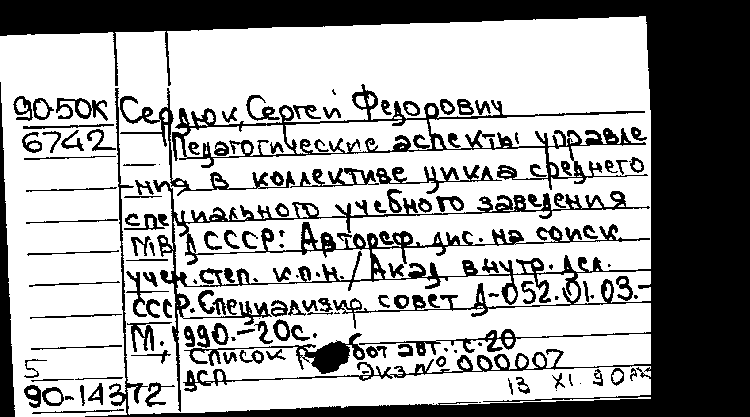 90-50К Сердюк, Сергей Федорович
6742 Педагогические аспекты управле
-ния в коллективе цикла среднего
специального учебного заведения
МВД СССР: Автореф. дис. на соиск.
учен. степ. к.п.н. / Акад. внутр. дел.
СССР. Специализир. совет Д-052.01.03.-
М., 1990.-20с.
Список работ авт.: с. 20
5 ДСП Экз № 000007
90-14372 13 XI 90